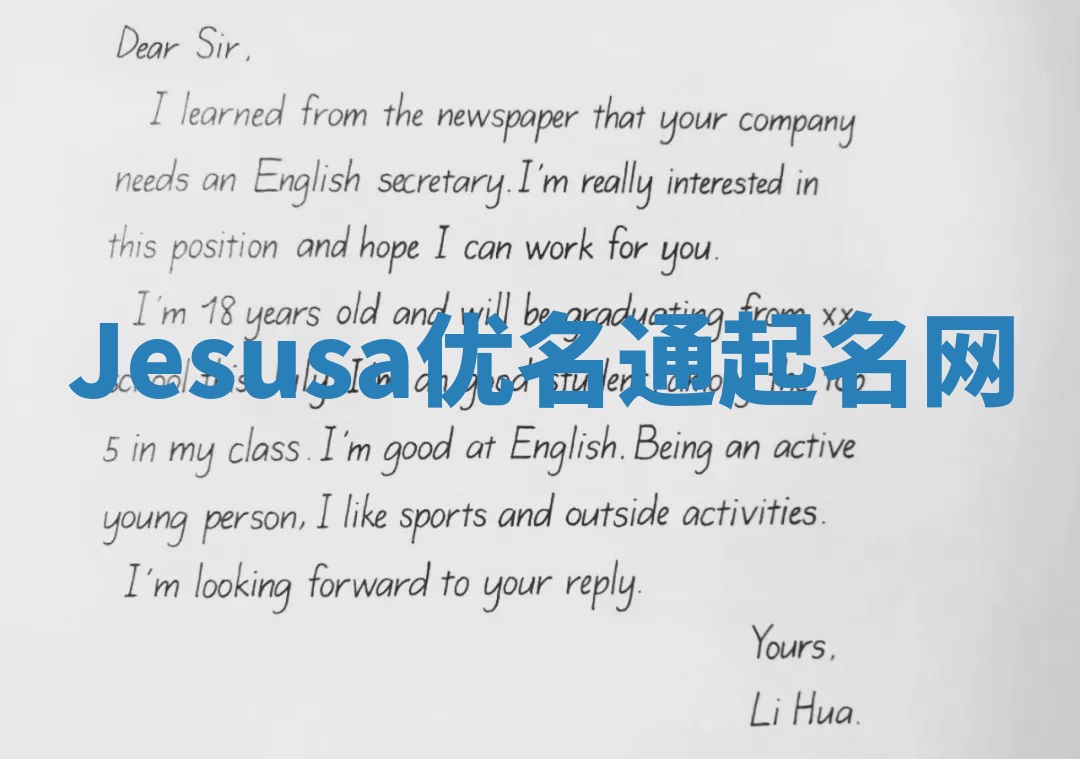 Dear Sir,
I learned from the newspaper that your company
needs an English secretary. I'm really interested in
this position and hope I can work for you.
I'm 18 years old and will be graduating from xx
Jesusa优名通起名网
school this July. I'm an good student among the top
5 in my class. I'm good at English. Being an active
young person, I like sports and outside activities.
I'm looking forward to your reply.
Yours,
Li Hua.